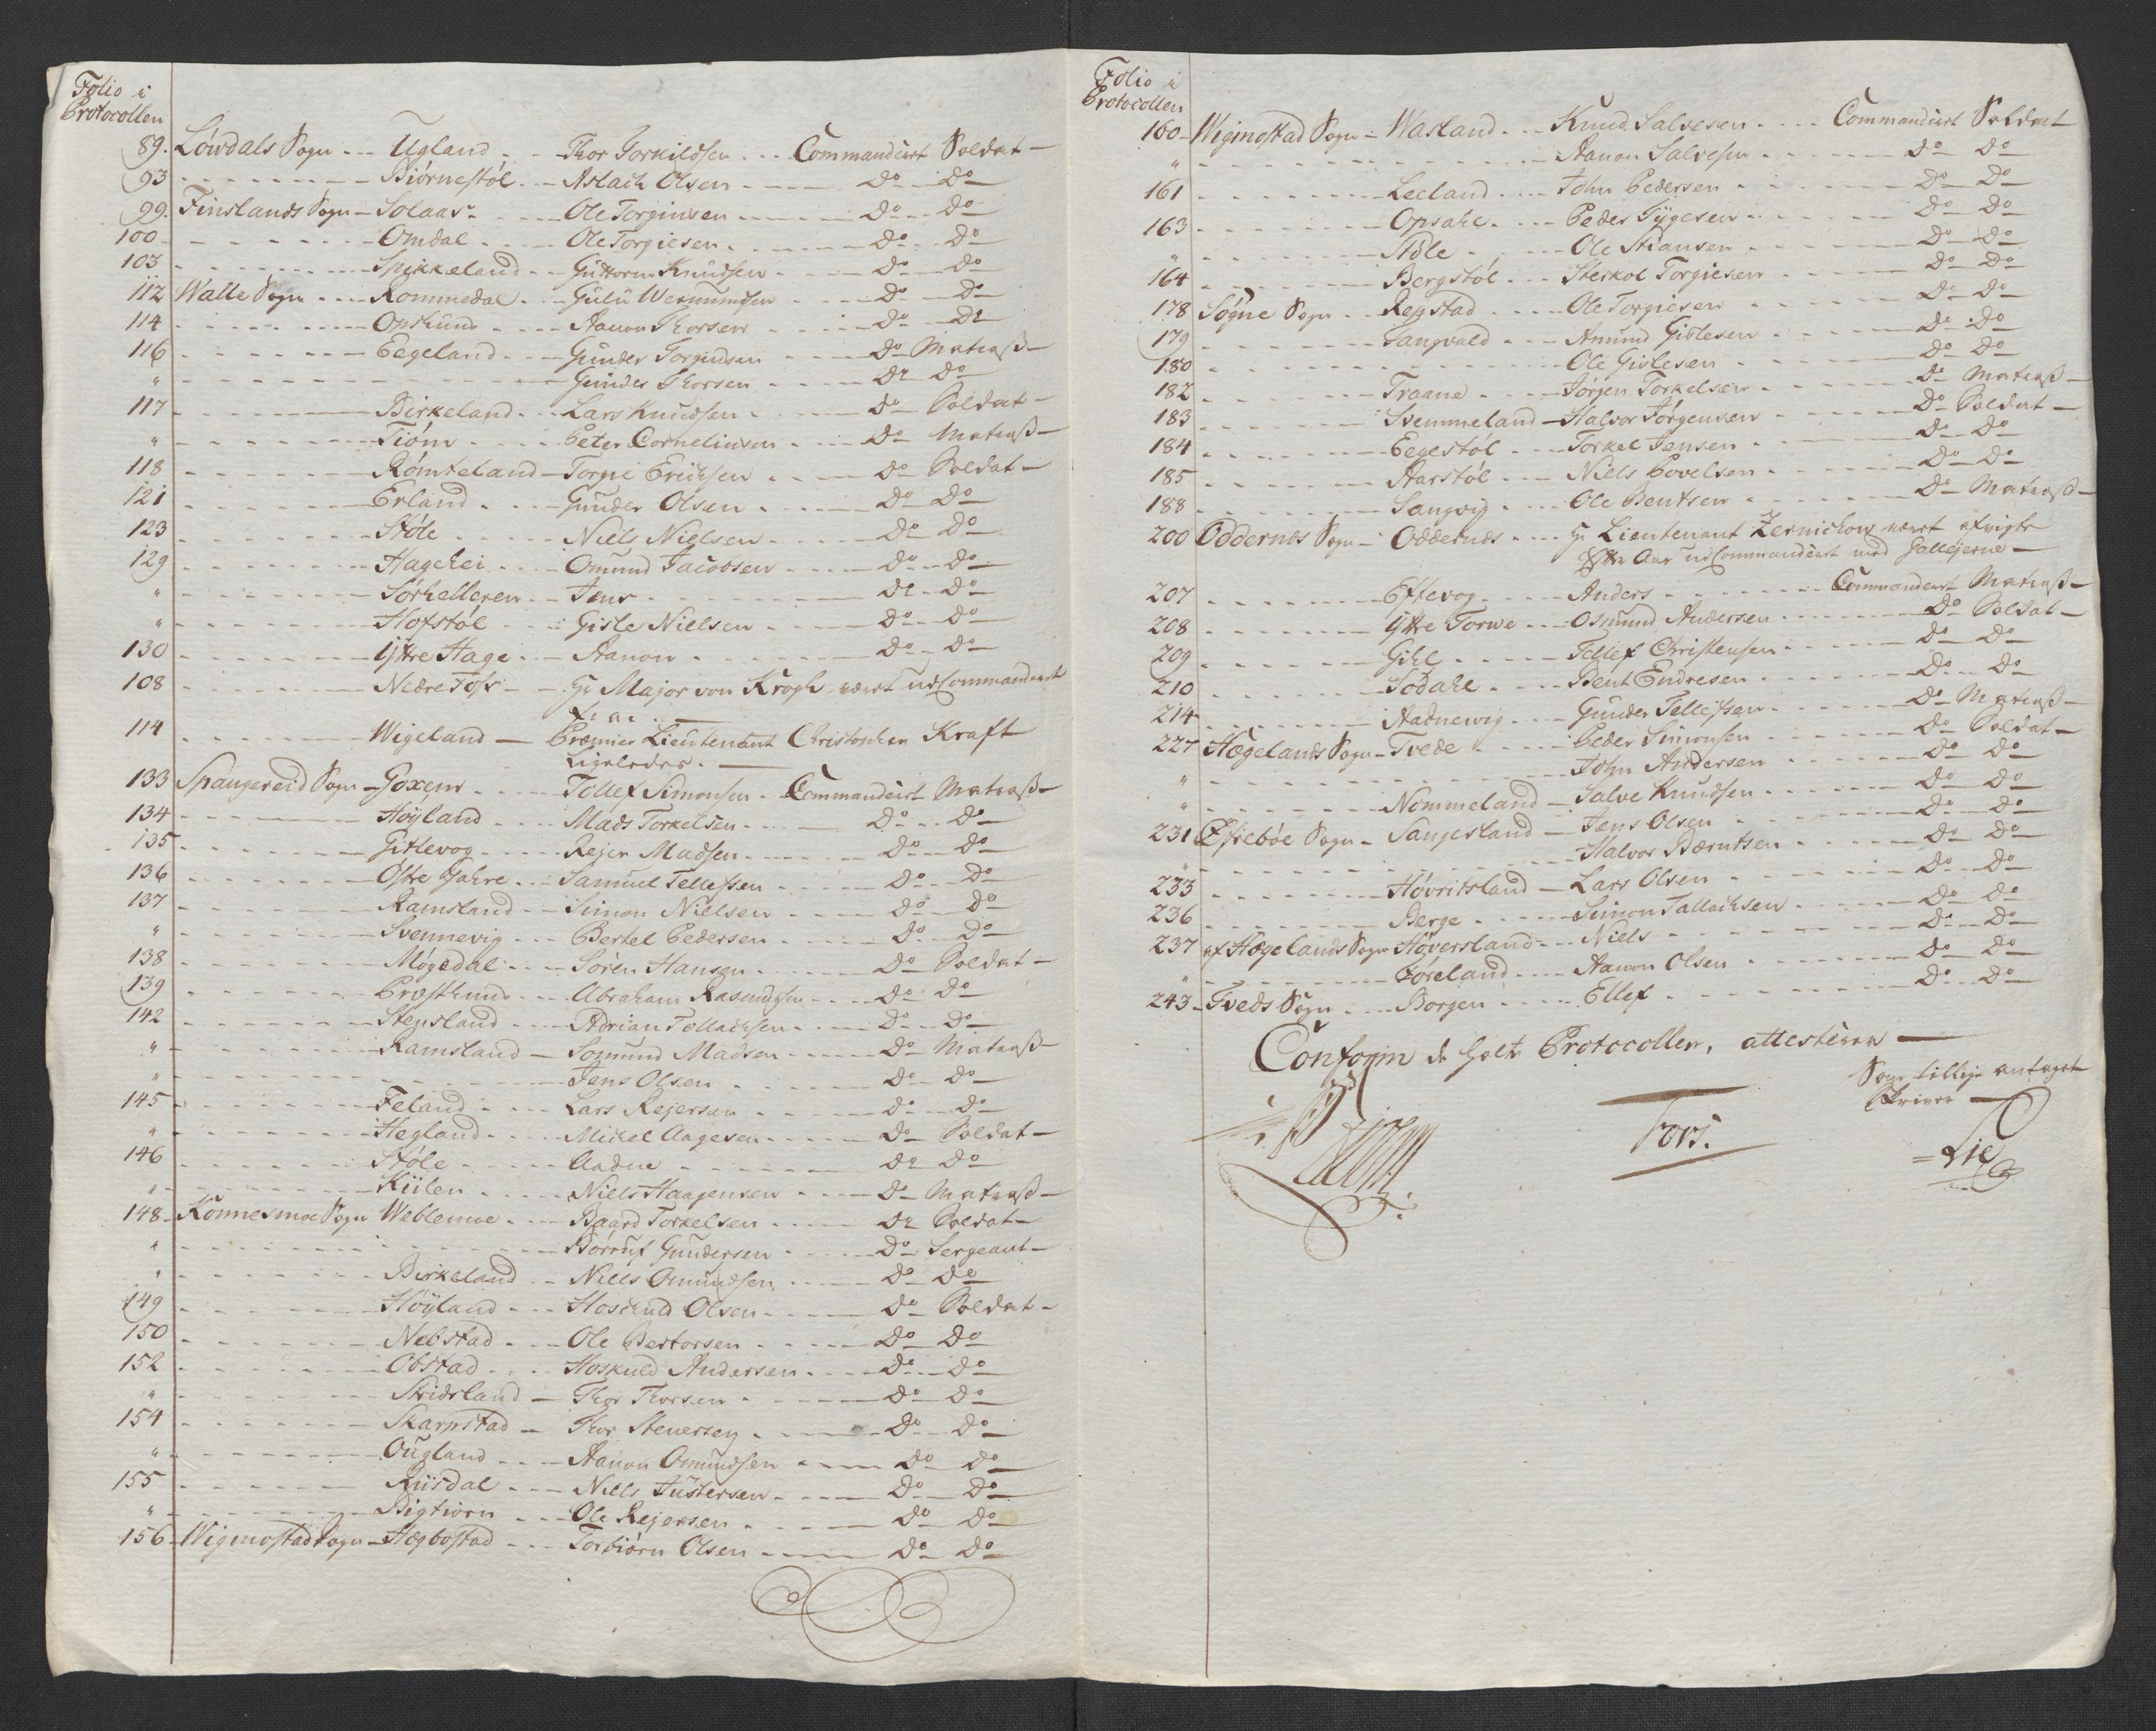 Folio i
Protocollen
89. Löwdals Sogn Ugland Thor Torkildsen Commandeert Soldat
93 Biörnestöl Aslach Olsen Do Do
99. Finslands Sogn Solaas Ole Torginsen Do Do
100 Omdal Ole Torgiesen Do Do
103 Spikkeland Guttorm Knudsen Do Do
112 Walle Sogn Rommedal Gulu Wermundsen Do Do
114 Opshund Aanon Thorsen Do Do
116 Eegeland Gunder Torgiudsen Do Matroß
" Gunder Thorsen Do Do
117 Birkeland Lars Knudsen Do Soldat
" Tiöm Peter Corneliusen Do Matroß
118 Römteland Torgie Erichsen Do Soldat
121 Erland Gunder Olsen Do Do
123 Stöle Niels Nielsen Do Do
129 Hagehei Omund Jacobsen Do Do
" Sörhelleren Jens Do Do
" Hofstöl Gisle Nielsen Do Do
130 Yttre Hage Aanon Do Do
108 Nedre Tofs Hr Major von Krogh været udCommandeert
114 Wigeland Præmier Lieutenant Christopher Kraft
Ligeledes.
133 Spangereid Sogn Goxem Tollef Simonsen Commandeert Matroß
134 Höyland Mads Torkelsen Do Do
135 Gitlevog Rejer Madsen Do Do
136 Östre Gahre Samuel Tellefsen Do Do
137 Ramsland Simon Nielsen Do Do
" Svennevig Bertel Pedersen Do Do
138 Mögedal Sören Hansen Do Soldat
139 Præsthuus Abraham Rasmusen Do Do
142 Stensland Adrian Tollachsen Do Do
" Ramsland Somund Madsen Do Matroß
" Jens Olsen Do Do
145 Feland Lars Rejersen Do Do
" Hegland Michel Aagesen Do Soldat
146 Stöle Aadne Do Do
" Kiilen Niels Haagensen Do Matroß
148 Konnesmoe Sogn Weblemoe Baard Torkelsen Do Soldat
" Börouf Gundersen Do Sergeant
" Birkeland Niels Omundsen Do Do
149 Höÿland Hoskuld Olsen Do Soldat
150 Nebstad Ole Bertorsen Do Do
152 Obstad Hoskuld Andersen Do Do
" Skidsland Thor Thorsen Do Do
154 Skarpstad Thor Stenersen Do Do
" Ougland Aanon Omundsen Do Do
155 Riisdal Niels Justersen Do Do
" Bigtiörn Ole Rejersen Do Do
156 Wigmostad Sogn Hægbostad Torbiörn Olsen Do Do
Folio i
Protocollen
160 Wigmostad Sogn Wasland Knud Salvesen Commandeert Soldat
" Aanon Salvesen Do Do
161 Leeland John Pedersen Do Do
163 Opsahl Peder Tygesen Do Do
" Stöle Ole Stiansen Do Do
164 Bergstöl Sterkol Torgiesen Do Do
178 Sögne Sogn Repstad Ole Torgiesen Do Do
179 Langvald Amund Gislesen Do Do
180 Ole Gislesen Do Do
182 Traane Jörgen Torkelsen Do Matroß
183 Svemmeland Halvor Jörgensen Do Soldat
184 Eegestöl Torkel Jensen Do Do
185 Aarstöl Niels Povelsen Do Do
188 Sangvig Ole Bentsen Do Matroß
200 Oddernes Sogn Oddernes Hr Lieutenant Zernichow været afvigte
Aar udCommandeert med Gallejerne
207 Eftevog Anders Commandeert Matroß
208 Yttre Torwe Osmund Andersen Do Soldat
209 Gihl Tellef Christensen Do Do
210 Sodahl Bent Endresen Do Do
214 Aadnevig Gunder Tellefsen Do Matroß
227 Hægelands Sogn Tvede Peder Simonsen Do Soldat
" John Andersen Do Do
" Nommeland Salve Knudsen Do Do
231 Efsebøe Sogn Sangesland Jens Olsen Do Do
" Halvor Berntsen Do Do
233 Hövritsland Lars Olsen Do Do
236 Berge Simon Tallachsen Do Do
237 af Hægelands Sogn Höversland Niels Do Do
" Föreland Aanon Olsen Do Do
243 Tveds Sogn Borgen Ellef Do Do
Conform de holte Protocoller, attesterer
Som tillige antaget
Skriver
Fors.
Lie